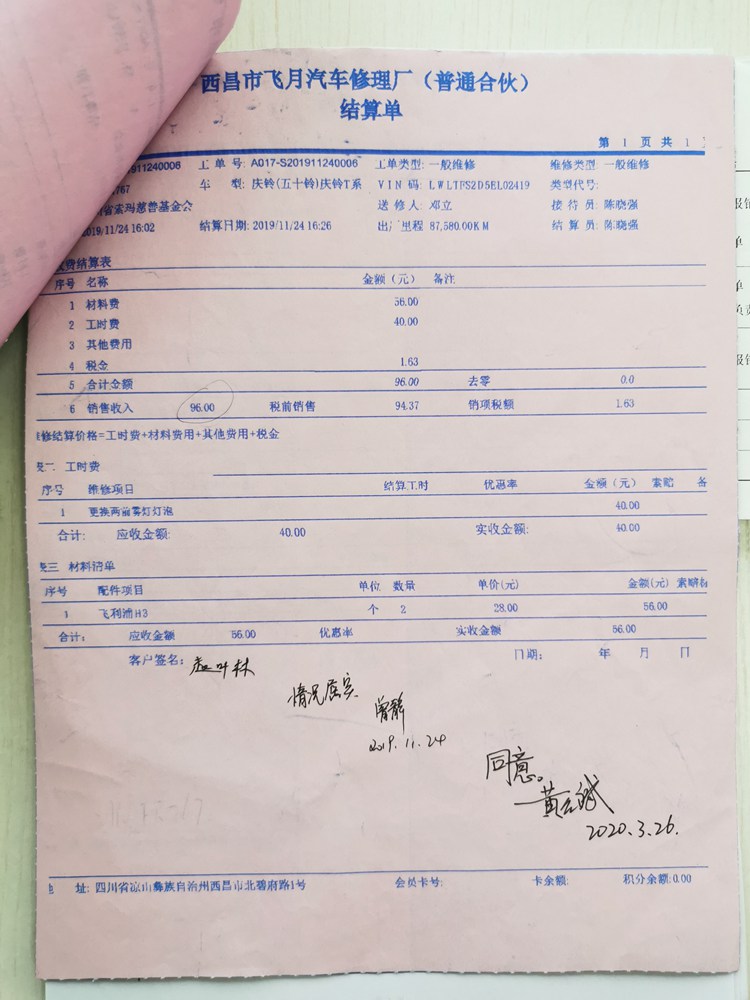 西昌市飞月汽车修理厂（普通合伙）
结算单
第 1 页 共 1
11240006 工 单 号: A017-S201911240006 工单类型: 一般维修 维修类型: 一般维修
767 车 型: 庆铃(五十铃)庆铃T系 VIN 码: LWLTFS2D5EL02419 类型代号:
省索玛慈善基金会 送 修 人: 邓立 接 待 员: 陈晓强
2019/11/24 16:02 结算日期: 2019/11/24 16:26 出厂里程 87,580.00KM 结 算 员: 陈晓强
费结算表
序号 名称 金额（元） 备注
1 材料费 56.00
2 工时费 40.00
3 其他费用
4 税金 1.63
5 合计金额 96.00 去零 0.0
6 销售收入 96.00 税前销售 94.37 销项税额 1.63
修结算价格=工时费+材料费用+其他费用+税金
表二 工时费
序号 维修项目 结算工时 优惠率 金额（元） 索赔 备
1 更换两前雾灯灯泡 40.00
合计: 应收金额: 40.00 实收金额: 40.00
表三 材料清单
序号 配件项目 单位 数量 单价(元) 金额(元) 索赔
1 飞利浦H3 个 2 28.00 56.00
合计: 应收金额 56.00 优惠率 实收金额 56.00
客户签名: 日期: 年 月 日
情况属实
2019.11.24
同意。
2020.3.26.
址: 四川省凉山彝族自治州西昌市北碧府路1号 会员卡号: 卡余额: 积分余额:0.00